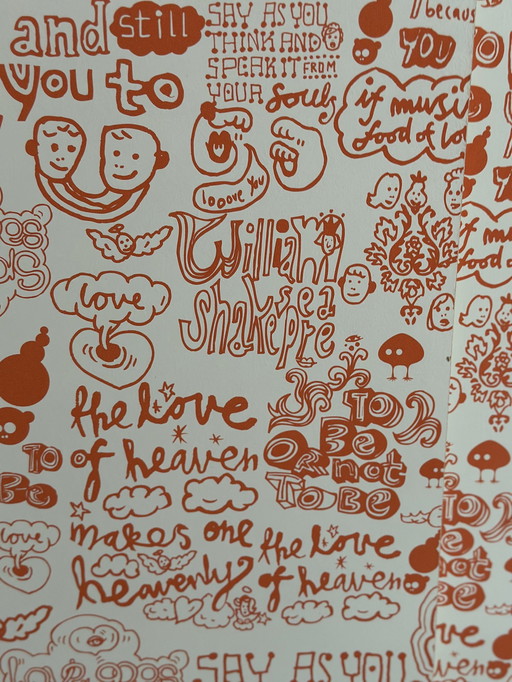 and still
you to
SAY AS YOU
THINK AND
SPEAK IT FROM
YOUR souls
becaus
YOU
if music
food of lo
looove you
William
shakespeare
love
the Love
of heaven
makes one
heavenly
TO
BE
OR not
TO BE
the Love
of heaven
TO
Be
love
SAY AS YOU
f mu
food o
TO
ve
ven